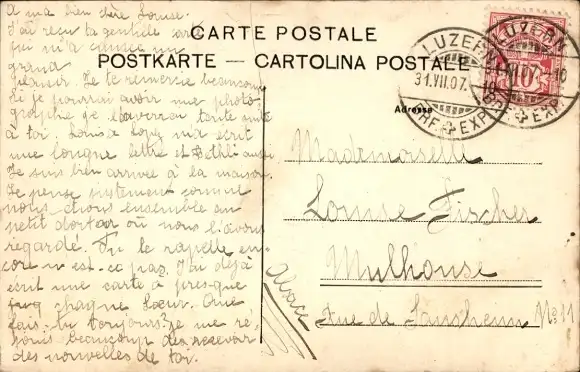 A ma bien chère Louise.
J'ai reçu ta gentille carte
qui m'a causée un
grand
plaisir. Je te remercie beaucoup
Si je pourrai avoir une photo-
graphie je t'enverrai tante suite
à toi. Louisa Lopy m'a écrit
une longue lettre et Bethli aussi
Je suis bien arrivée à la maison.
Je pense justement comme
nous étions ensemble au
petit dortoir où nous l'avons
regardé. Tu le rapelle en-
core n'est-ce pas. J'ai déjà
écrit une carte à presque
chaque Sœur. Que
fais-tu toujours? Je me ré-
jouis beaucoup des recevoir
des nouvelles de toi.
CARTE POSTALE
POSTKARTE — CARTOLINA POSTALE
Adresse
LUZERN
31.VII.07.
BRF. EXP.
LUZERN
VII.07
BRF. EXP.
10
Mademoiselle
Louise Fischer
Mulhouse
Alsace
Rue de No 11